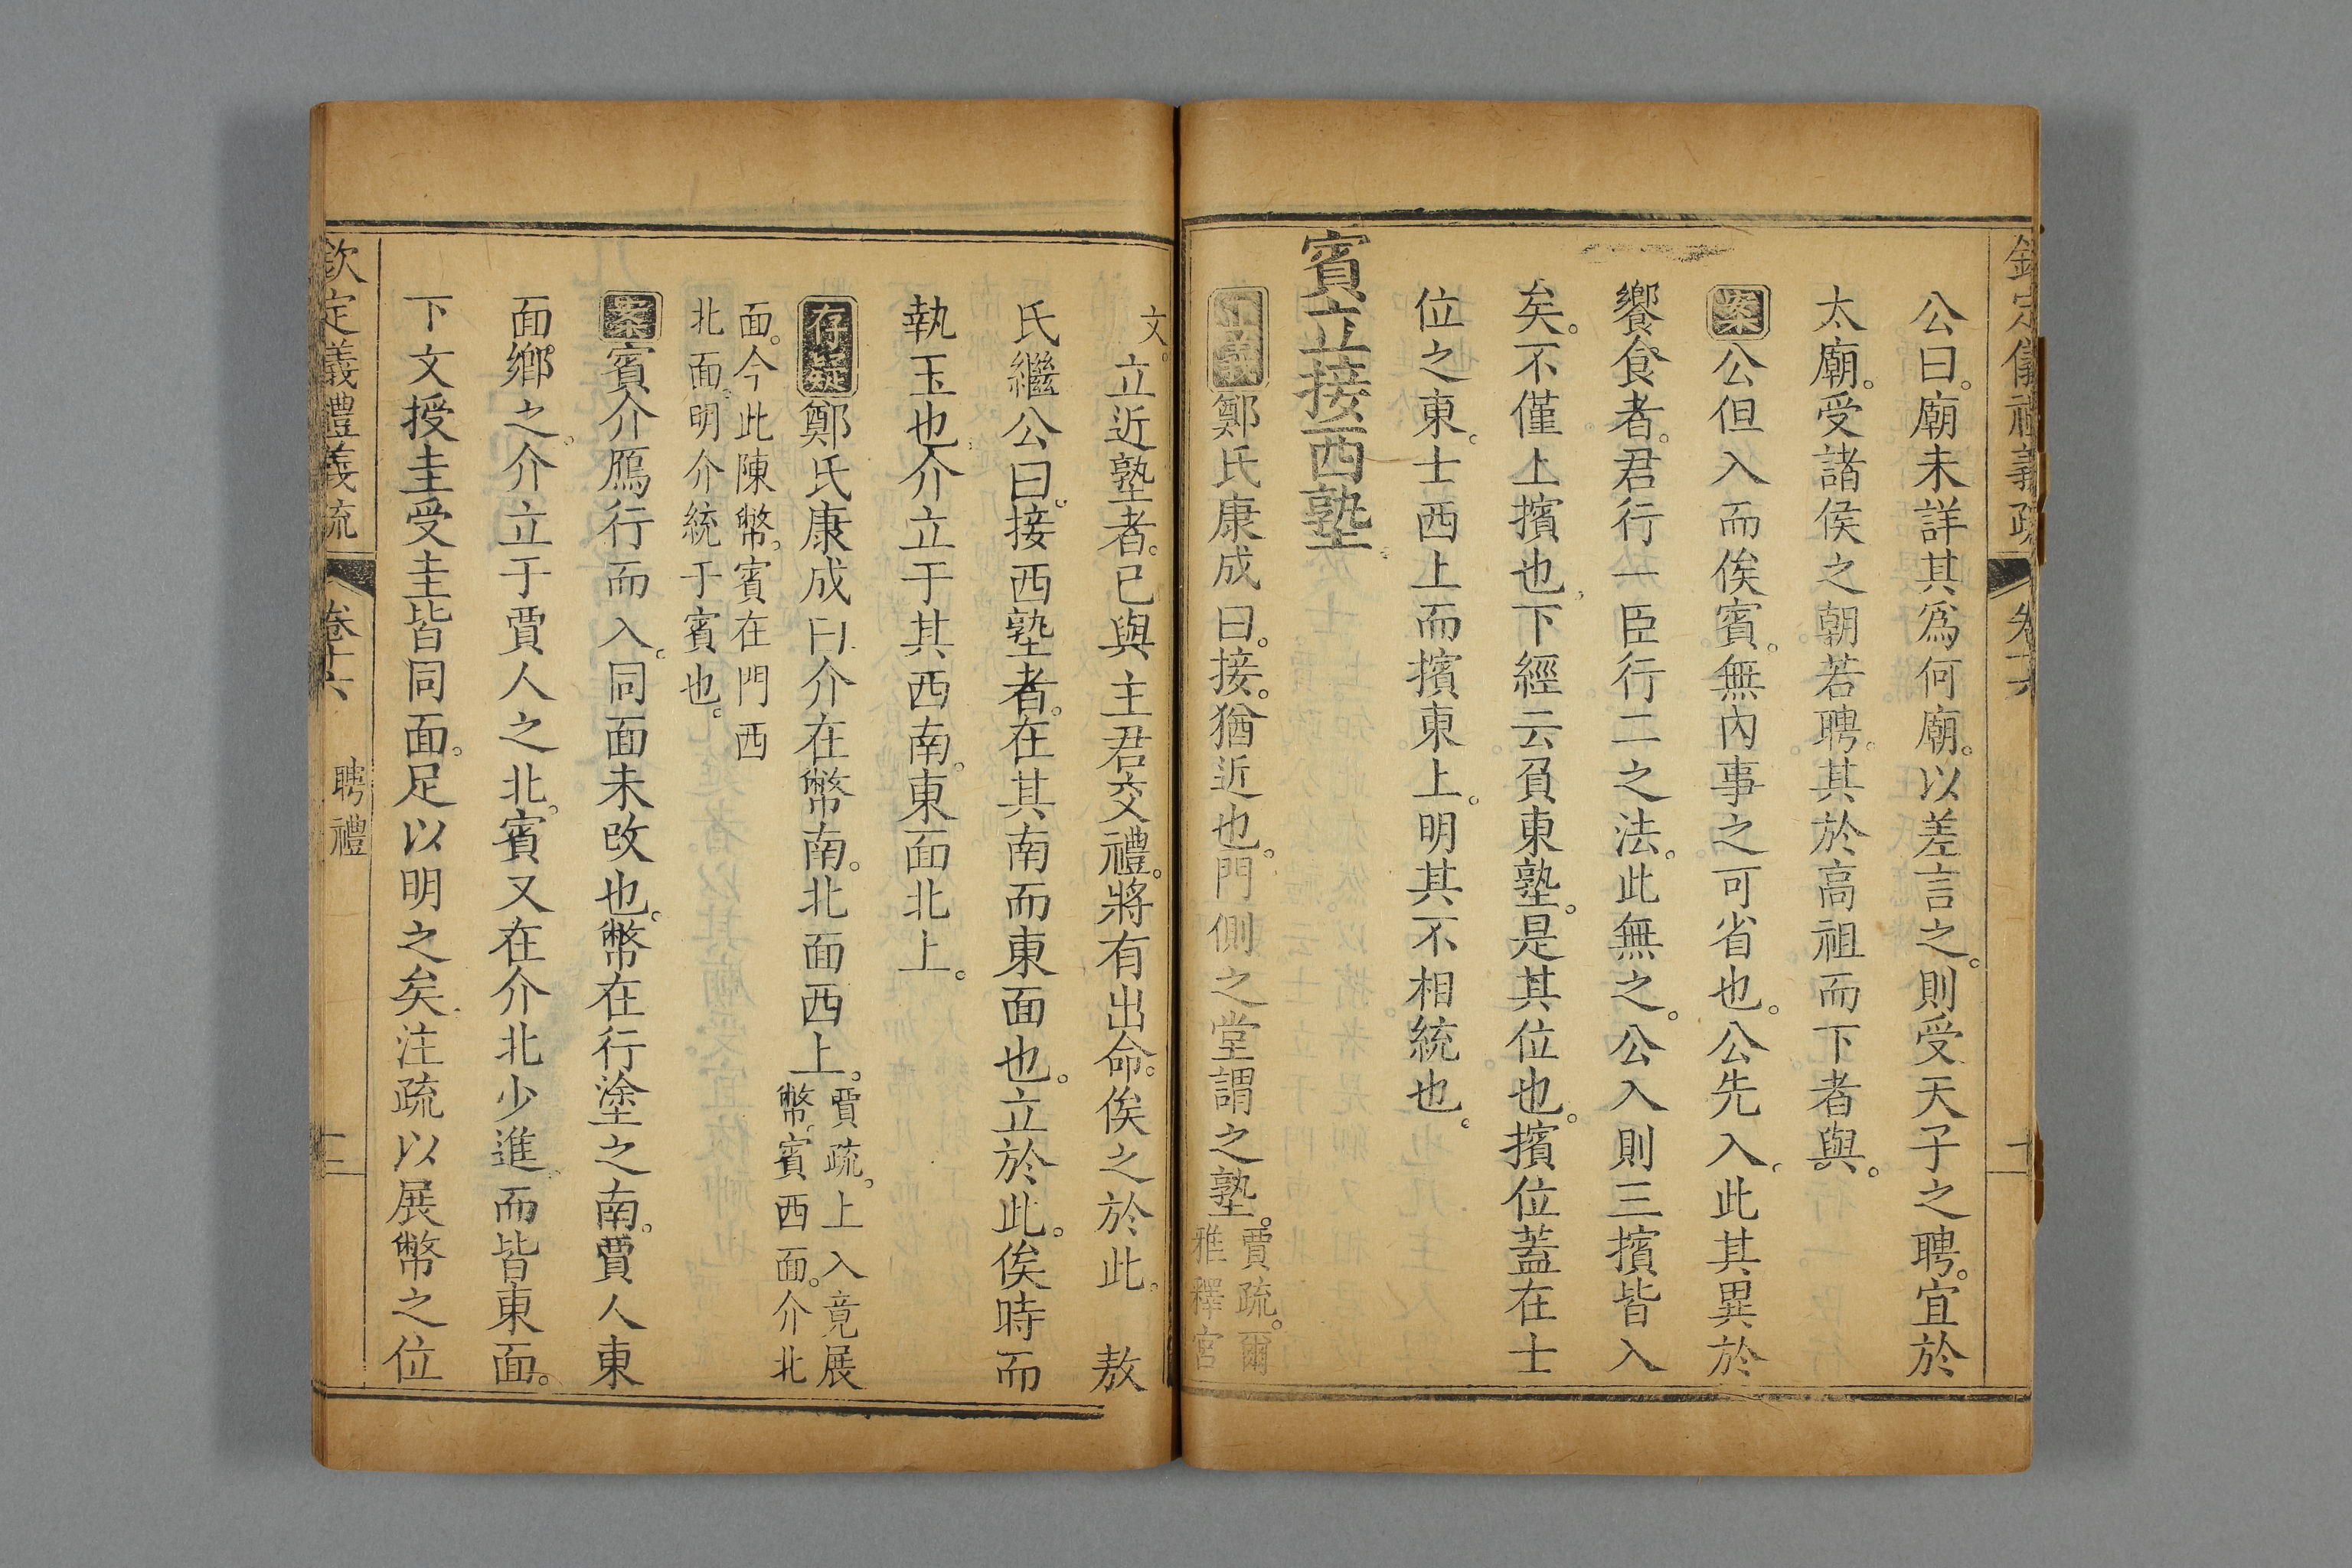 公曰。廟未詳其爲何廟。以差言之。則受天子之聘。宜於
太廟。受諸侯之朝若聘。其於高祖而下者與。
案公但入而俟賓。無內事之可省也。公先入。此其異於
饗食者。君行一臣行二之法。此無之。公入則三擯皆入
矣。不僅上擯也。下經云負東塾。是其位也。擯位蓋在士
位之東。士西上而擯東上。明其不相統也。
賓立接西塾。
正義鄭氏康成曰。接。猶近也。門側之堂謂之塾。賈疏。爾
雅釋宮
文。立近塾者。已與主君交禮。將有出命。俟之於此。 敖
氏繼公曰。接西塾者。在其南而東面也。立於此。俟時而
執玉也。介立于其西南。東面北上。
存疑鄭氏康成曰介在幣南。北面西上。賈疏。上入竟展
幣。賓西面。介北
面。今此陳幣。賓在門西
北面。明介統于賓也。
案賓介鴈行而入。同面未改也。幣在行塗之南。賈人東
面鄉之。介立于賈人之北。賓又在介北少進。而皆東面。
下文授圭受圭皆同面。足以明之矣。注疏以展幣之位
欽定義禮義疏 卷十六 聘禮
欽定儀禮義疏 卷十六